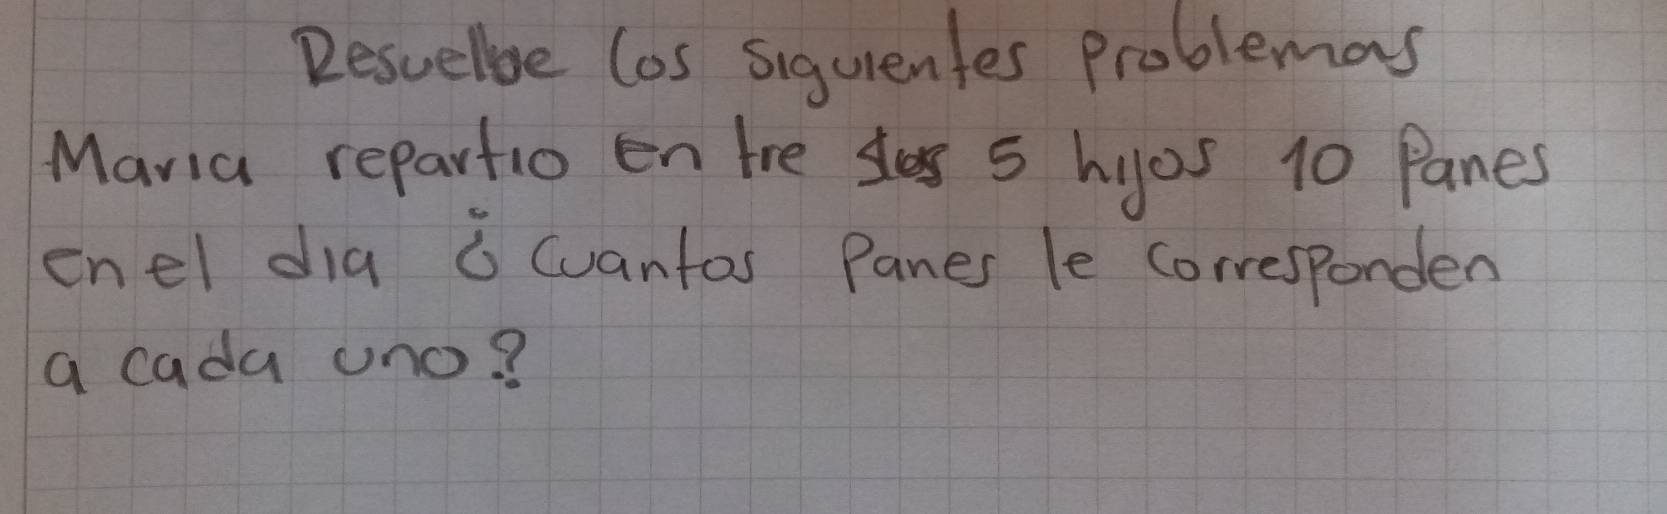 Resuelbe los siguientes problemas
Maria repartio entre sus 5 hijos 10 Panes
en el dia ¿Cuantos Panes le corresponden
a cada uno?